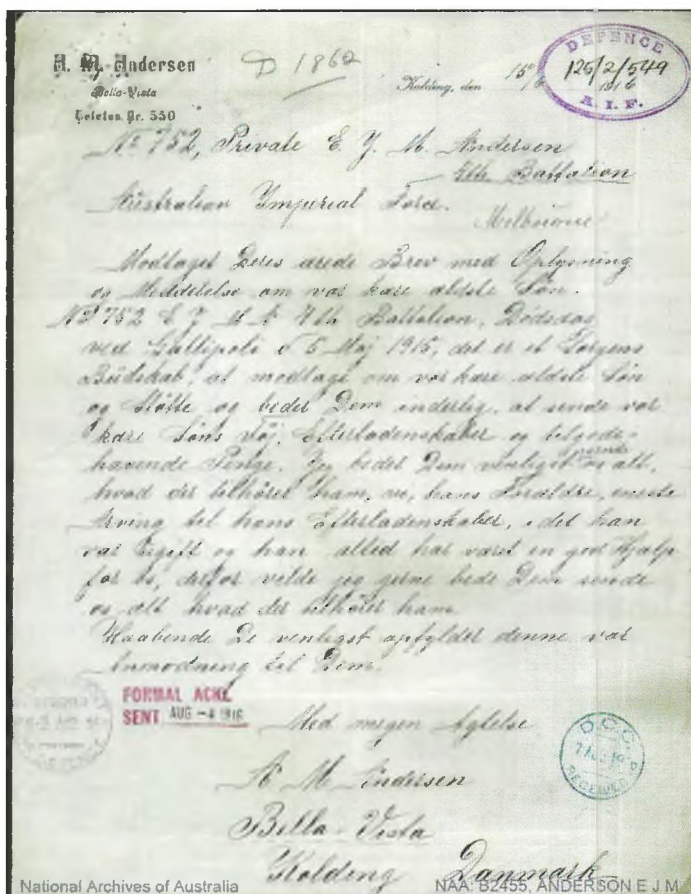 A. M. Andersen
Bella-Vista
Telefon Nr. 550
D 1862
Kolding, den 15/6
DEFENCE
125/2/549
1916
A.I.F.
No 752, Private E. J. M. Andersen
4th Battalion
Australian Imperial Force.
Melbourne
Modtaget Deres ærede Brev med Oplysning
og Meddelelse om vor kære ældste Søn.
No 752 E J M A 4th Battalion, Dødsdag
ved Gallipoli d 5 Maj 1915, det er et Sorgens
Budskab, at modtage om vor kære ældste Søn
og Støtte og beder Dem inderlig, at sende vor
kære Søns Tøj, Efterladenskaber og tilgode-
havende Penge. Jeg beder Dem venligst sende os alt,
hvad der tilhører ham, vi, hans Forældre, eneste
Arving til hans Efterladenskaber, idet han
var Ugift og han altid har været en god Hjælp
for os, derfor vilde jeg gerne bede Dem sende
os alt hvad der tilhører ham.
Haabende De venligst opfylder denne vor
Anmodning til Dem.
FORMAL ACKE
SENT AUG -4 1916
Med megen Agtelse
D.C.C.
RECEIVED
A M Andersen
Bella-Vista
Kolding Danmark
National Archives of Australia
NAA: B2455, ANDERSON E J M